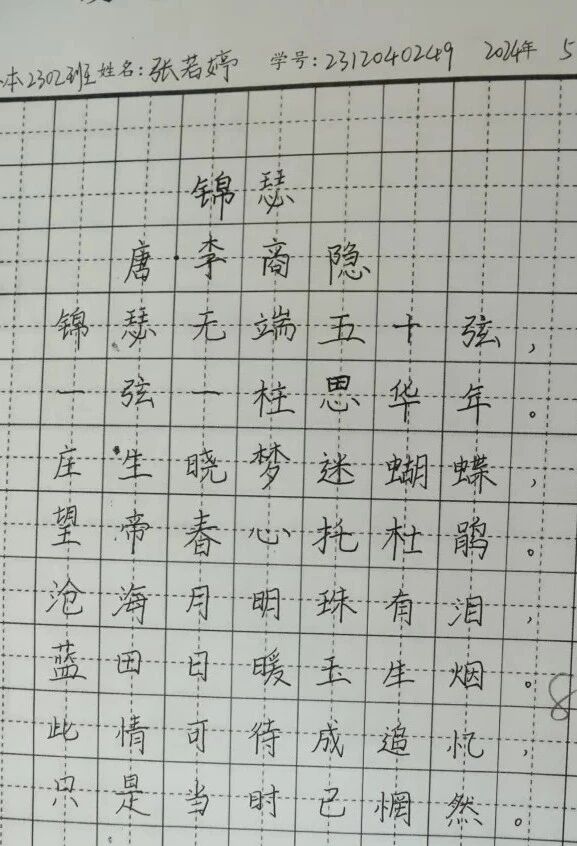 本2302班姓名:张若婷 学号:2312040249 2024年 5
锦瑟
唐·李商隐
锦瑟无端五十弦,
一弦一柱思华年。
庄生晓梦迷蝴蝶,
望帝春心托杜鹃。
沧海月明珠有泪,
蓝田日暖玉生烟。
此情可待成追忆,
只是当时已惘然。
8